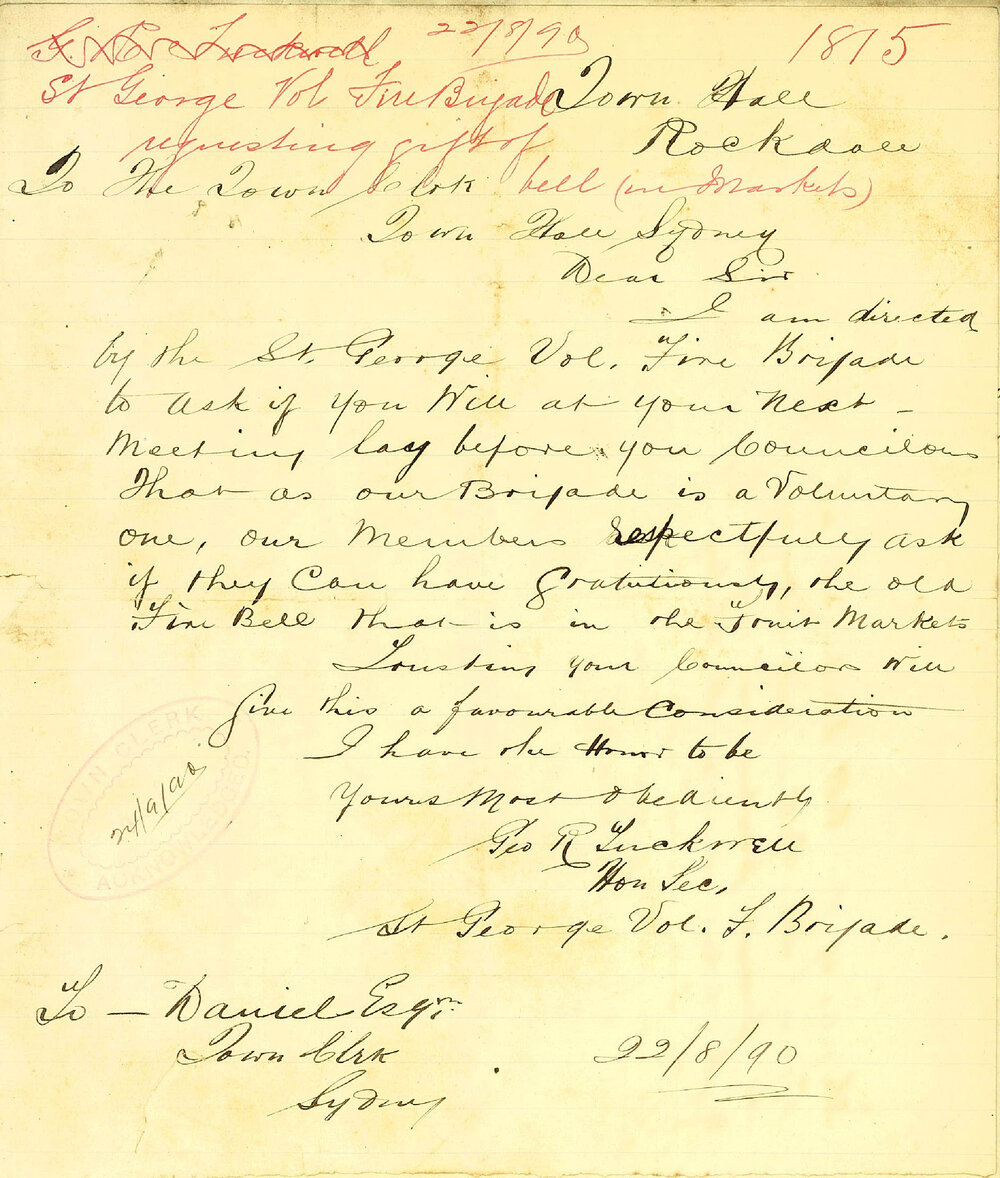 22/8/90
1815
St George Vol Fire Brigade
requesting gift of
bell (in Markets)
Town Hall
Rockdale
To The Town Clrk
Town Hall Sydney
Dear Sir
I am directed
by the St. George Vol. Fire Brigade
to ask if you Will at your Next
Meeting lay before you Councilors
That as our Brigade is a Voluntary
one, our Members respectfully ask
if they Can have Gratutiously, the old
Fire Bell that is in the Fruit Markets
Trusting your Councilors Will
Give this a favourable Consideration
I have the Honor to be
Yours Most Obediently
Geo R Tuckwell
Hon Sec,
St George Vol. F. Brigade.
TOWN CLERK
24/9/90
ACKNOWLEDGED.
To — Daniel Esqr.
Town Clrk
Sydney
22/8/90